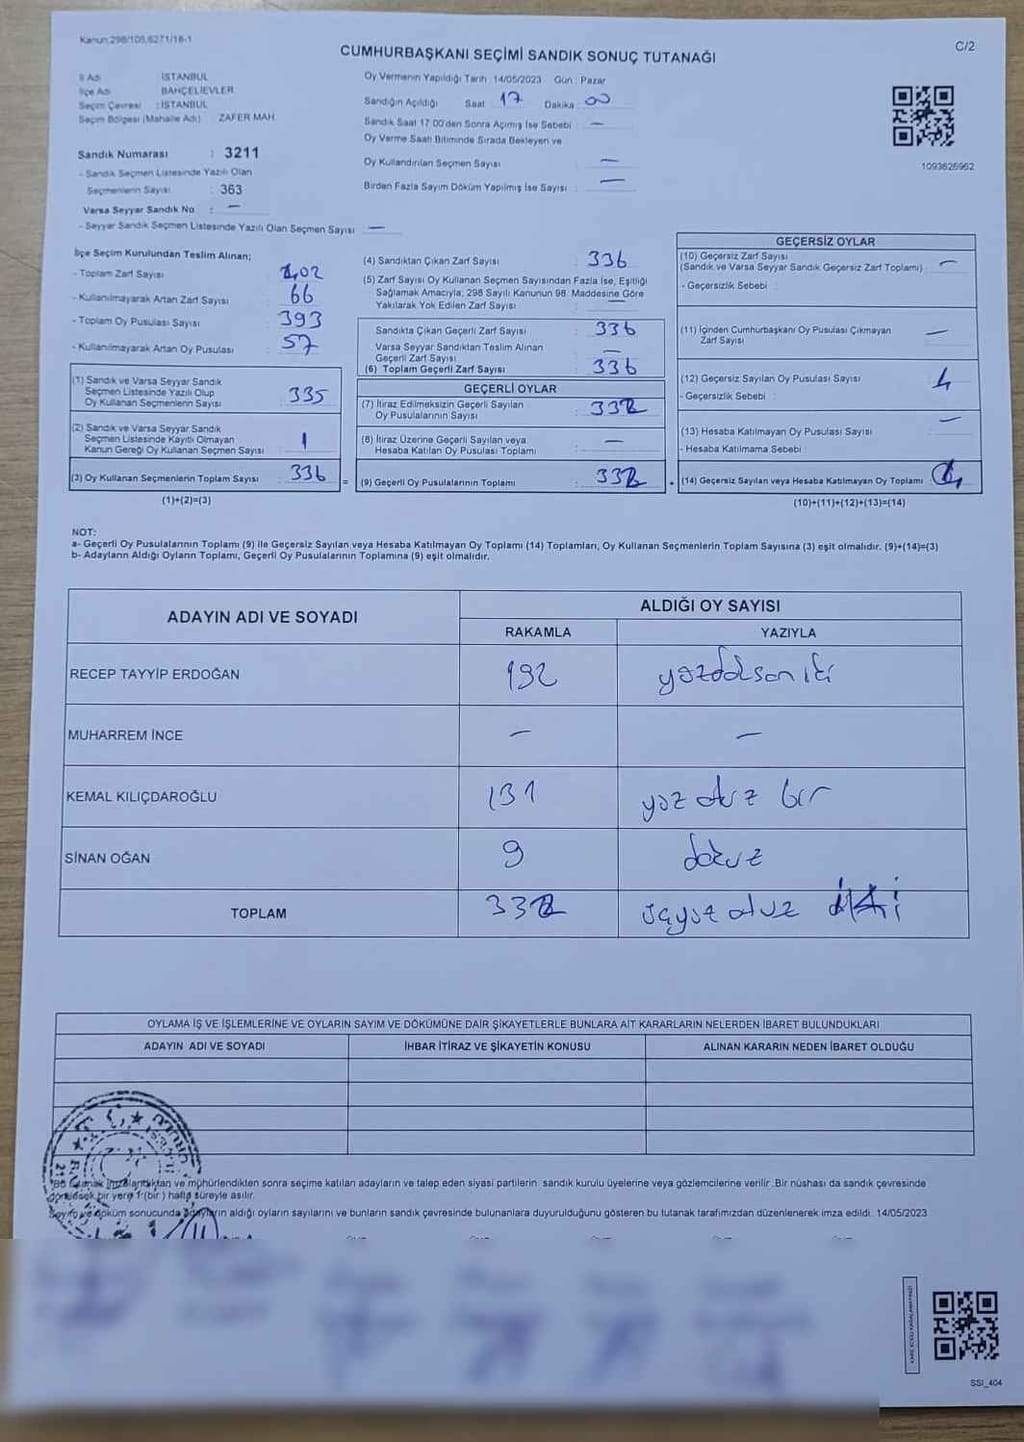 Kanun:298/105,6271/16-1
C/2
CUMHURBAŞKANI SEÇİMİ SANDIK SONUÇ TUTANAĞI
İl Adı İSTANBUL
İlçe Adı BAHÇELİEVLER
Seçim Çevresi : İSTANBUL
Seçim Bölgesi (Mahalle Adı) ZAFER MAH.
Sandık Numarası : 3211
- Sandık Seçmen Listesinde Yazılı Olan
Seçmenlerin Sayısı : 363
Varsa Seyyar Sandık No : -
- Seyyar Sandık Seçmen Listesinde Yazılı Olan Seçmen Sayısı -
Oy Vermenin Yapıldığı Tarih : 14/05/2023 Gün : Pazar
Sandığın Açıldığı Saat 17 Dakika : 00
Sandık Saat 17:00'den Sonra Açımış İse Sebebi : -
Oy Verme Saati Bitiminde Sırada Bekleyen ve
Oy Kullandırılan Seçmen Sayısı -
Birden Fazla Sayım Döküm Yapılmış İse Sayısı : -
1093626962
İlçe Seçim Kurulundan Teslim Alınan;
- Toplam Zarf Sayısı 402
- Kullanılmayarak Artan Zarf Sayısı 66
- Toplam Oy Pusulası Sayısı 393
- Kullanılmayarak Artan Oy Pusulası 57
(1) Sandık ve Varsa Seyyar Sandık
Seçmen Listesinde Yazılı Olup
Oy Kullanan Seçmenlerin Sayısı 335
(2) Sandık ve Varsa Seyyar Sandık
Seçmen Listesinde Kayıtlı Olmayan
Kanun Gereği Oy Kullanan Seçmen Sayısı 1
(3) Oy Kullanan Seçmenlerin Toplam Sayısı 336
(1)+(2)=(3)
=
(4) Sandıktan Çıkan Zarf Sayısı 336
(5) Zarf Sayısı Oy Kullanan Seçmen Sayısından Fazla İse, Eşitliği
Sağlamak Amacıyla, 298 Sayılı Kanunun 98. Maddesine Göre
Yakılarak Yok Edilen Zarf Sayısı -
Sandıkta Çıkan Geçerli Zarf Sayısı 336
Varsa Seyyar Sandıktan Teslim Alınan
Geçerli Zarf Sayısı -
(6) Toplam Geçerli Zarf Sayısı 336
GEÇERLİ OYLAR
(7) İtiraz Edilmeksizin Geçerli Sayılan
Oy Pusulalarının Sayısı : 332
(8) İtiraz Üzerine Geçerli Sayılan veya
Hesaba Katılan Oy Pusulası Toplamı -
(9) Geçerli Oy Pusulalarının Toplamı : 332
GEÇERSİZ OYLAR
(10) Geçersiz Zarf Sayısı -
(Sandık ve Varsa Seyyar Sandık Geçersiz Zarf Toplamı)
- Geçersizlik Sebebi :
(11) İçinden Cumhurbaşkanı Oy Pusulası Çıkmayan
Zarf Sayısı -
(12) Geçersiz Sayılan Oy Pusulası Sayısı 4
- Geçersizlik Sebebi :
(13) Hesaba Katılmayan Oy Pusulası Sayısı -
- Hesaba Katılmama Sebebi :
(14) Geçersiz Sayılan veya Hesaba Katılmayan Oy Toplamı 4
(10)+(11)+(12)+(13)=(14)
NOT:
a- Geçerli Oy Pusulalarının Toplamı (9) ile Geçersiz Sayılan veya Hesaba Katılmayan Oy Toplamı (14) Toplamları, Oy Kullanan Seçmenlerin Toplam Sayısına (3) eşit olmalıdır. (9)+(14)=(3)
b- Adayların Aldığı Oyların Toplamı, Geçerli Oy Pusulalarının Toplamına (9) eşit olmalıdır.
ADAYIN ADI VE SOYADI
ALDIĞI OY SAYISI
RAKAMLA YAZIYLA
RECEP TAYYİP ERDOĞAN 192 yüzdoksan iki
MUHARREM İNCE - -
KEMAL KILIÇDAROĞLU 131 yüz otuz bir
SİNAN OĞAN 9 dokuz
TOPLAM 332 üçyüz otuz iki
OYLAMA İŞ VE İŞLEMLERİNE VE OYLARIN SAYIM VE DÖKÜMÜNE DAİR ŞİKAYETLERLE BUNLARA AİT KARARLARIN NELERDEN İBARET BULUNDUKLARI
ADAYIN ADI VE SOYADI İHBAR İTİRAZ VE ŞİKAYETİN KONUSU ALINAN KARARIN NEDEN İBARET OLDUĞU
T.C.
Bu tutanak imzalandıktan ve mühürlendikten sonra seçime katılan adayların ve talep eden siyasi partilerin sandık kurulu üyelerine veya gözlemcilerine verilir. Bir nüshası da sandık çevresinde
görülecek bir yere 1 (bir) hafta süreyle asılır.
Sayım ve döküm sonucunda adayların aldığı oyların sayılarını ve bunların sandık çevresinde bulunanlara duyurulduğunu gösteren bu tutanak tarafımızdan düzenlenerek imza edildi. 14/05/2023
SSI_404